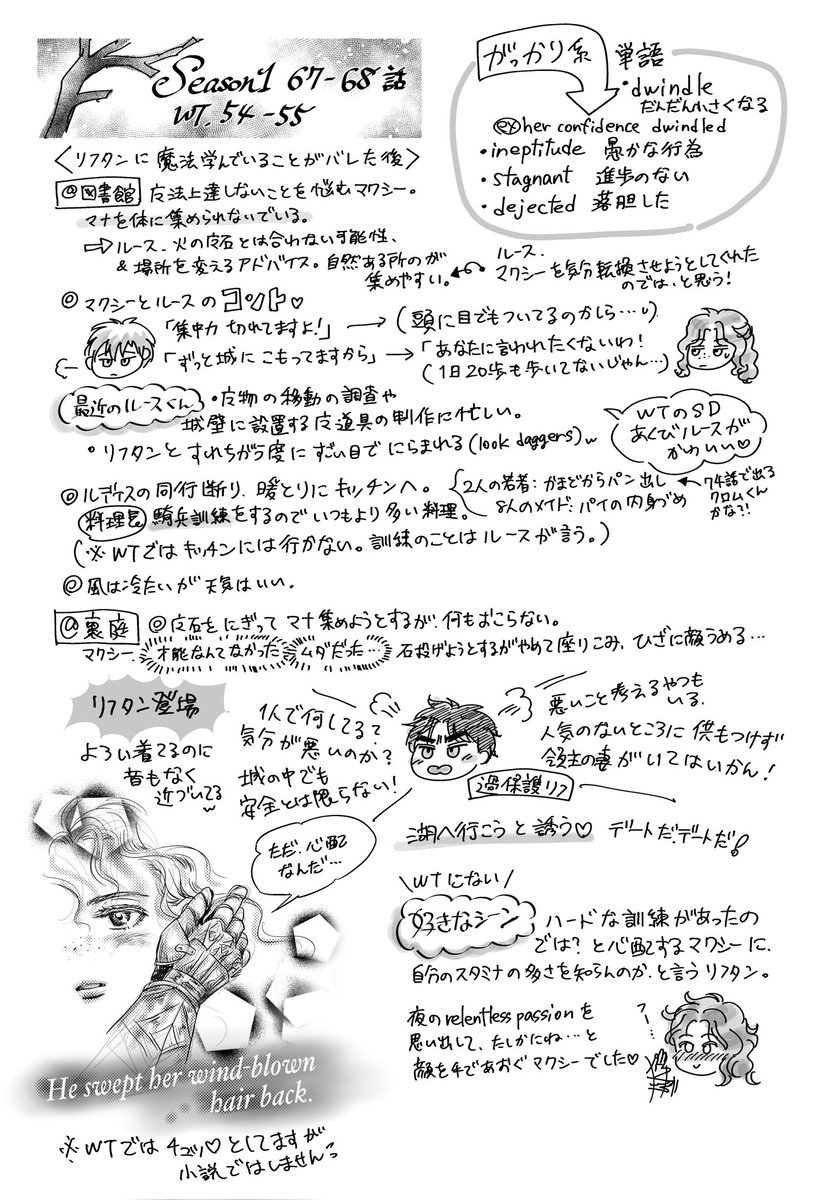 Season1 67-68話
WT. 54-55
がっかり系 単語
・dwindle
だんだん小さくなる
ex her confidence dwindled
・ineptitude 愚かな行為
・stagnant 進歩のない
・dejected 落胆した
〈リフタンに魔法学んでいることがバレた後〉
@図書館 广法上達しないことを悩むマクシー。
マナを体に集められないでいる。
⇨ルース、火の广石とは合わない可能性、
&場所を変えるアドバイス。自然ある所のが
集めやすい。
ルース、
マクシーを気分転換させようとしてくれた
のでは、と思う!
◎マクシーとルースのコント♡
「集中力切れてますよ!」→(頭に目でもついてるのかしら…)
「ずっと城にこもってますから」→「あなたに言われたくないわ!
(1日20歩も歩いてないじゃん…)
最近のルースくん ・广物の移動の調査や
城壁に設置する广道具の制作に忙しい。
・リフタンとすれちがう度にすごい目でにらまれる(look daggers)w
WTのSD
あくびルースが
かわいい♡
◎ルディスの同行断り、暖とりにキッチンへ。
2人の若者:かまどからパン出し
←74話で出る
クロムくん
かな?!
8人のメイド:パイの内身づめ
料理長 騎兵訓練をするのでいつもより多い料理。
(※WTではキッチンには行かない。訓練のことはルースが言う。)
◎風は冷たいが天気はいい。
@裏庭 ◎广石をにぎってマナ集めようとするが、何もおこらない。
マクシー、才能なんてなかった ムダだった… 石投げようとするがやめて座りこみ、ひざに顔うめる…
リフタン登場
よろい着てるのに
音もなく
近づいてる
1人で何してる?
気分が悪いのか?
城の中でも
安全とは限らない!
悪いこと考えるやつも
いる、
人気のないところに供もつけず
領主の妻がいてはいかん!
過保護リフ
ただ、心配
なんだ…
湖へ行こうと誘う♡ デートだ、デートだ!
\WTにない/
好きなシーン ハードな訓練があったの
では?と心配するマクシーに、
自分のスタミナの多さを知らんのか、と言うリフタン。
夜のrelentless passionを
思い出して、たしかにね…と
顔を手であおぐマクシーでした♡
フー…
He swept her wind-blown
hair back.
※WTではチュッ♡としてますが
小説ではしません